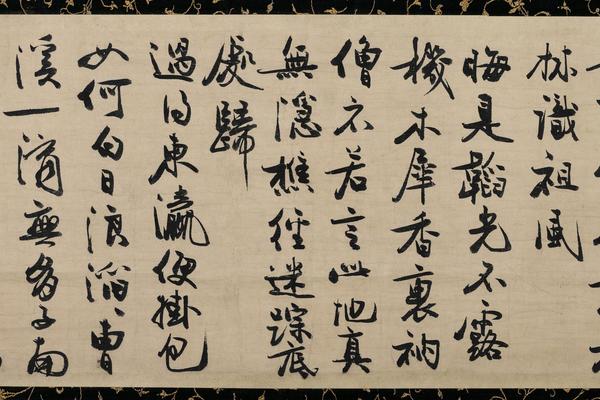 林識祖風
晦是韜光不露
機木犀香裏衲
僧不若言此地真
無隱樵徑迷蹤底
處歸
過得東瀛便掛包
如何白日浪滔々曹
溪一滴無多子南